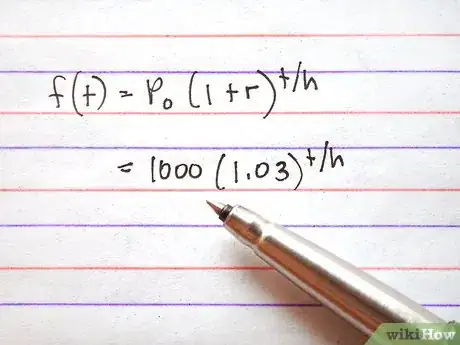 f(t) = P₀ (1+r)^t/h
= 1000 (1.03)^t/h
wikiHow